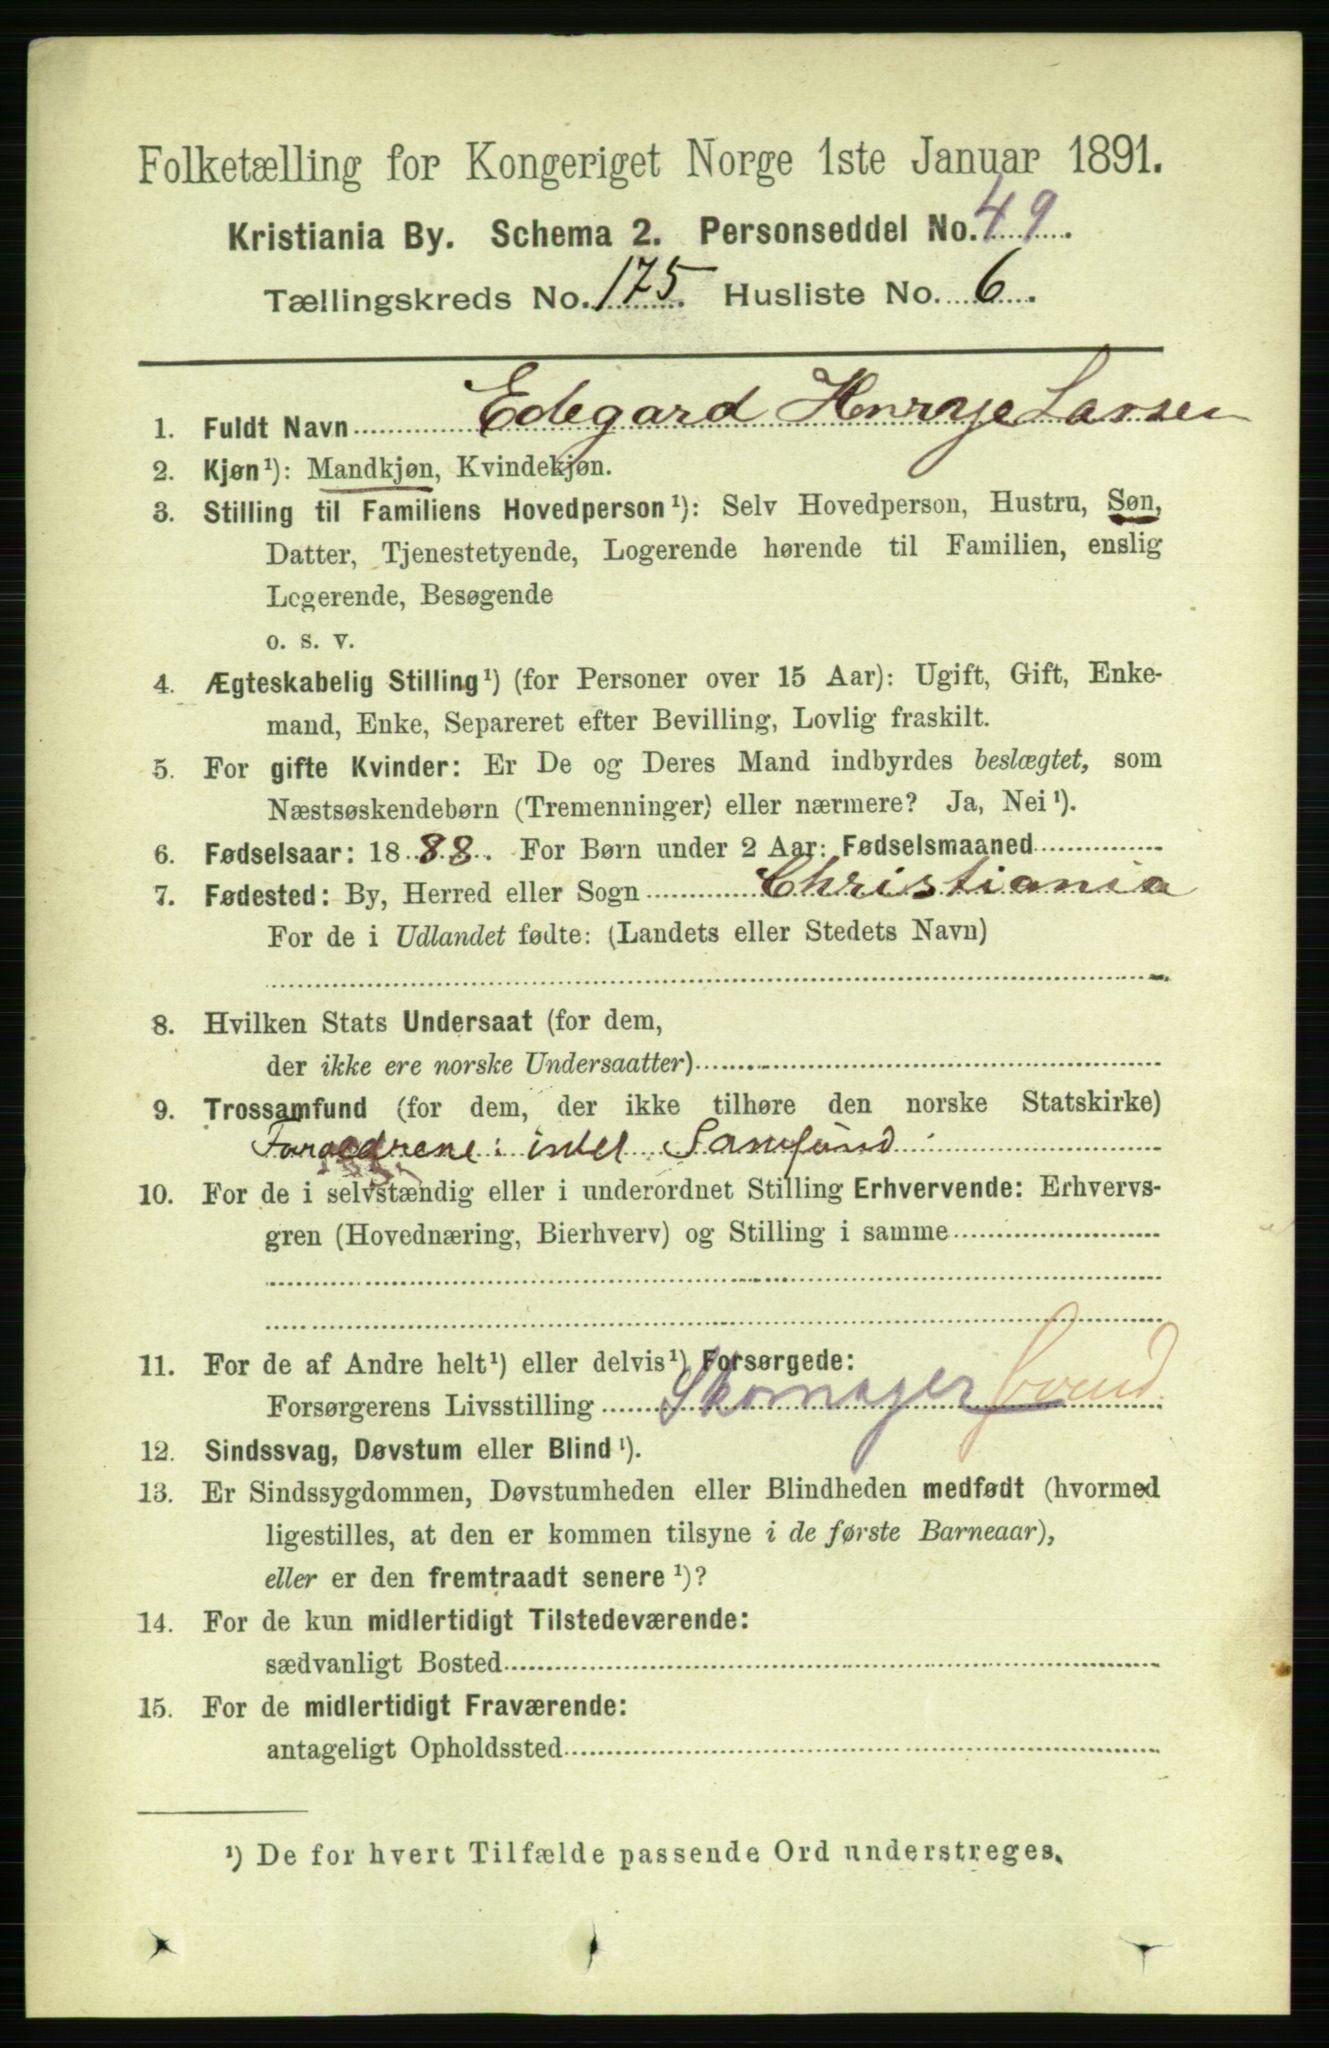 Folketælling for Kongeriget Norge 1ste Januar 1891.
Kristiania By. Schema 2. Personseddel No. 49.
Tællingskreds No. 175. Husliste No. 6.
1. Fuldt Navn Edegard Henrye Larsen
2. Kjøn¹): Mandkjøn, Kvindekjøn.
3. Stilling til Familiens Hovedperson¹): Selv Hovedperson, Hustru, Søn,
Datter, Tjenestetyende, Logerende hørende til Familien, enslig
Logerende, Besøgende
o. s. v.
4. Ægteskabelig Stilling¹) (for Personer over 15 Aar): Ugift, Gift, Enke-
mand, Enke, Separeret efter Bevilling, Lovlig fraskilt.
5. For gifte Kvinder: Er De og Deres Mand indbyrdes beslægtet, som
Næstsøskendebørn (Tremenninger) eller nærmere? Ja, Nei¹).
6. Fødselsaar: 1888. For Børn under 2 Aar: Fødselsmaaned
7. Fødested: By, Herred eller Sogn Christiania
For de i Udlandet fødte: (Landets eller Stedets Navn)
8. Hvilken Stats Undersaat (for dem,
der ikke ere norske Undersaatter)
9. Trossamfund (for dem, der ikke tilhøre den norske Statskirke)
Foraeldrene: intet Samfund
10. For de i selvstændig eller i underordnet Stilling Erhvervende: Erhvervs-
gren (Hovednæring, Bierhverv) og Stilling i samme
11. For de af Andre helt¹) eller delvis¹) Forsørgede:
Forsørgerens Livsstilling Skomager
12. Sindssvag, Døvstum eller Blind¹).
13. Er Sindssygdommen, Døvstumheden eller Blindheden medfødt (hvormed
ligestilles, at den er kommen tilsyne i de første Barneaar),
eller er den fremtraadt senere¹)?
14. For de kun midlertidigt Tilstedeværende:
sædvanligt Bosted
15. For de midlertidigt Fraværende:
antageligt Opholdssted
¹) De for hvert Tilfælde passende Ord understreges.